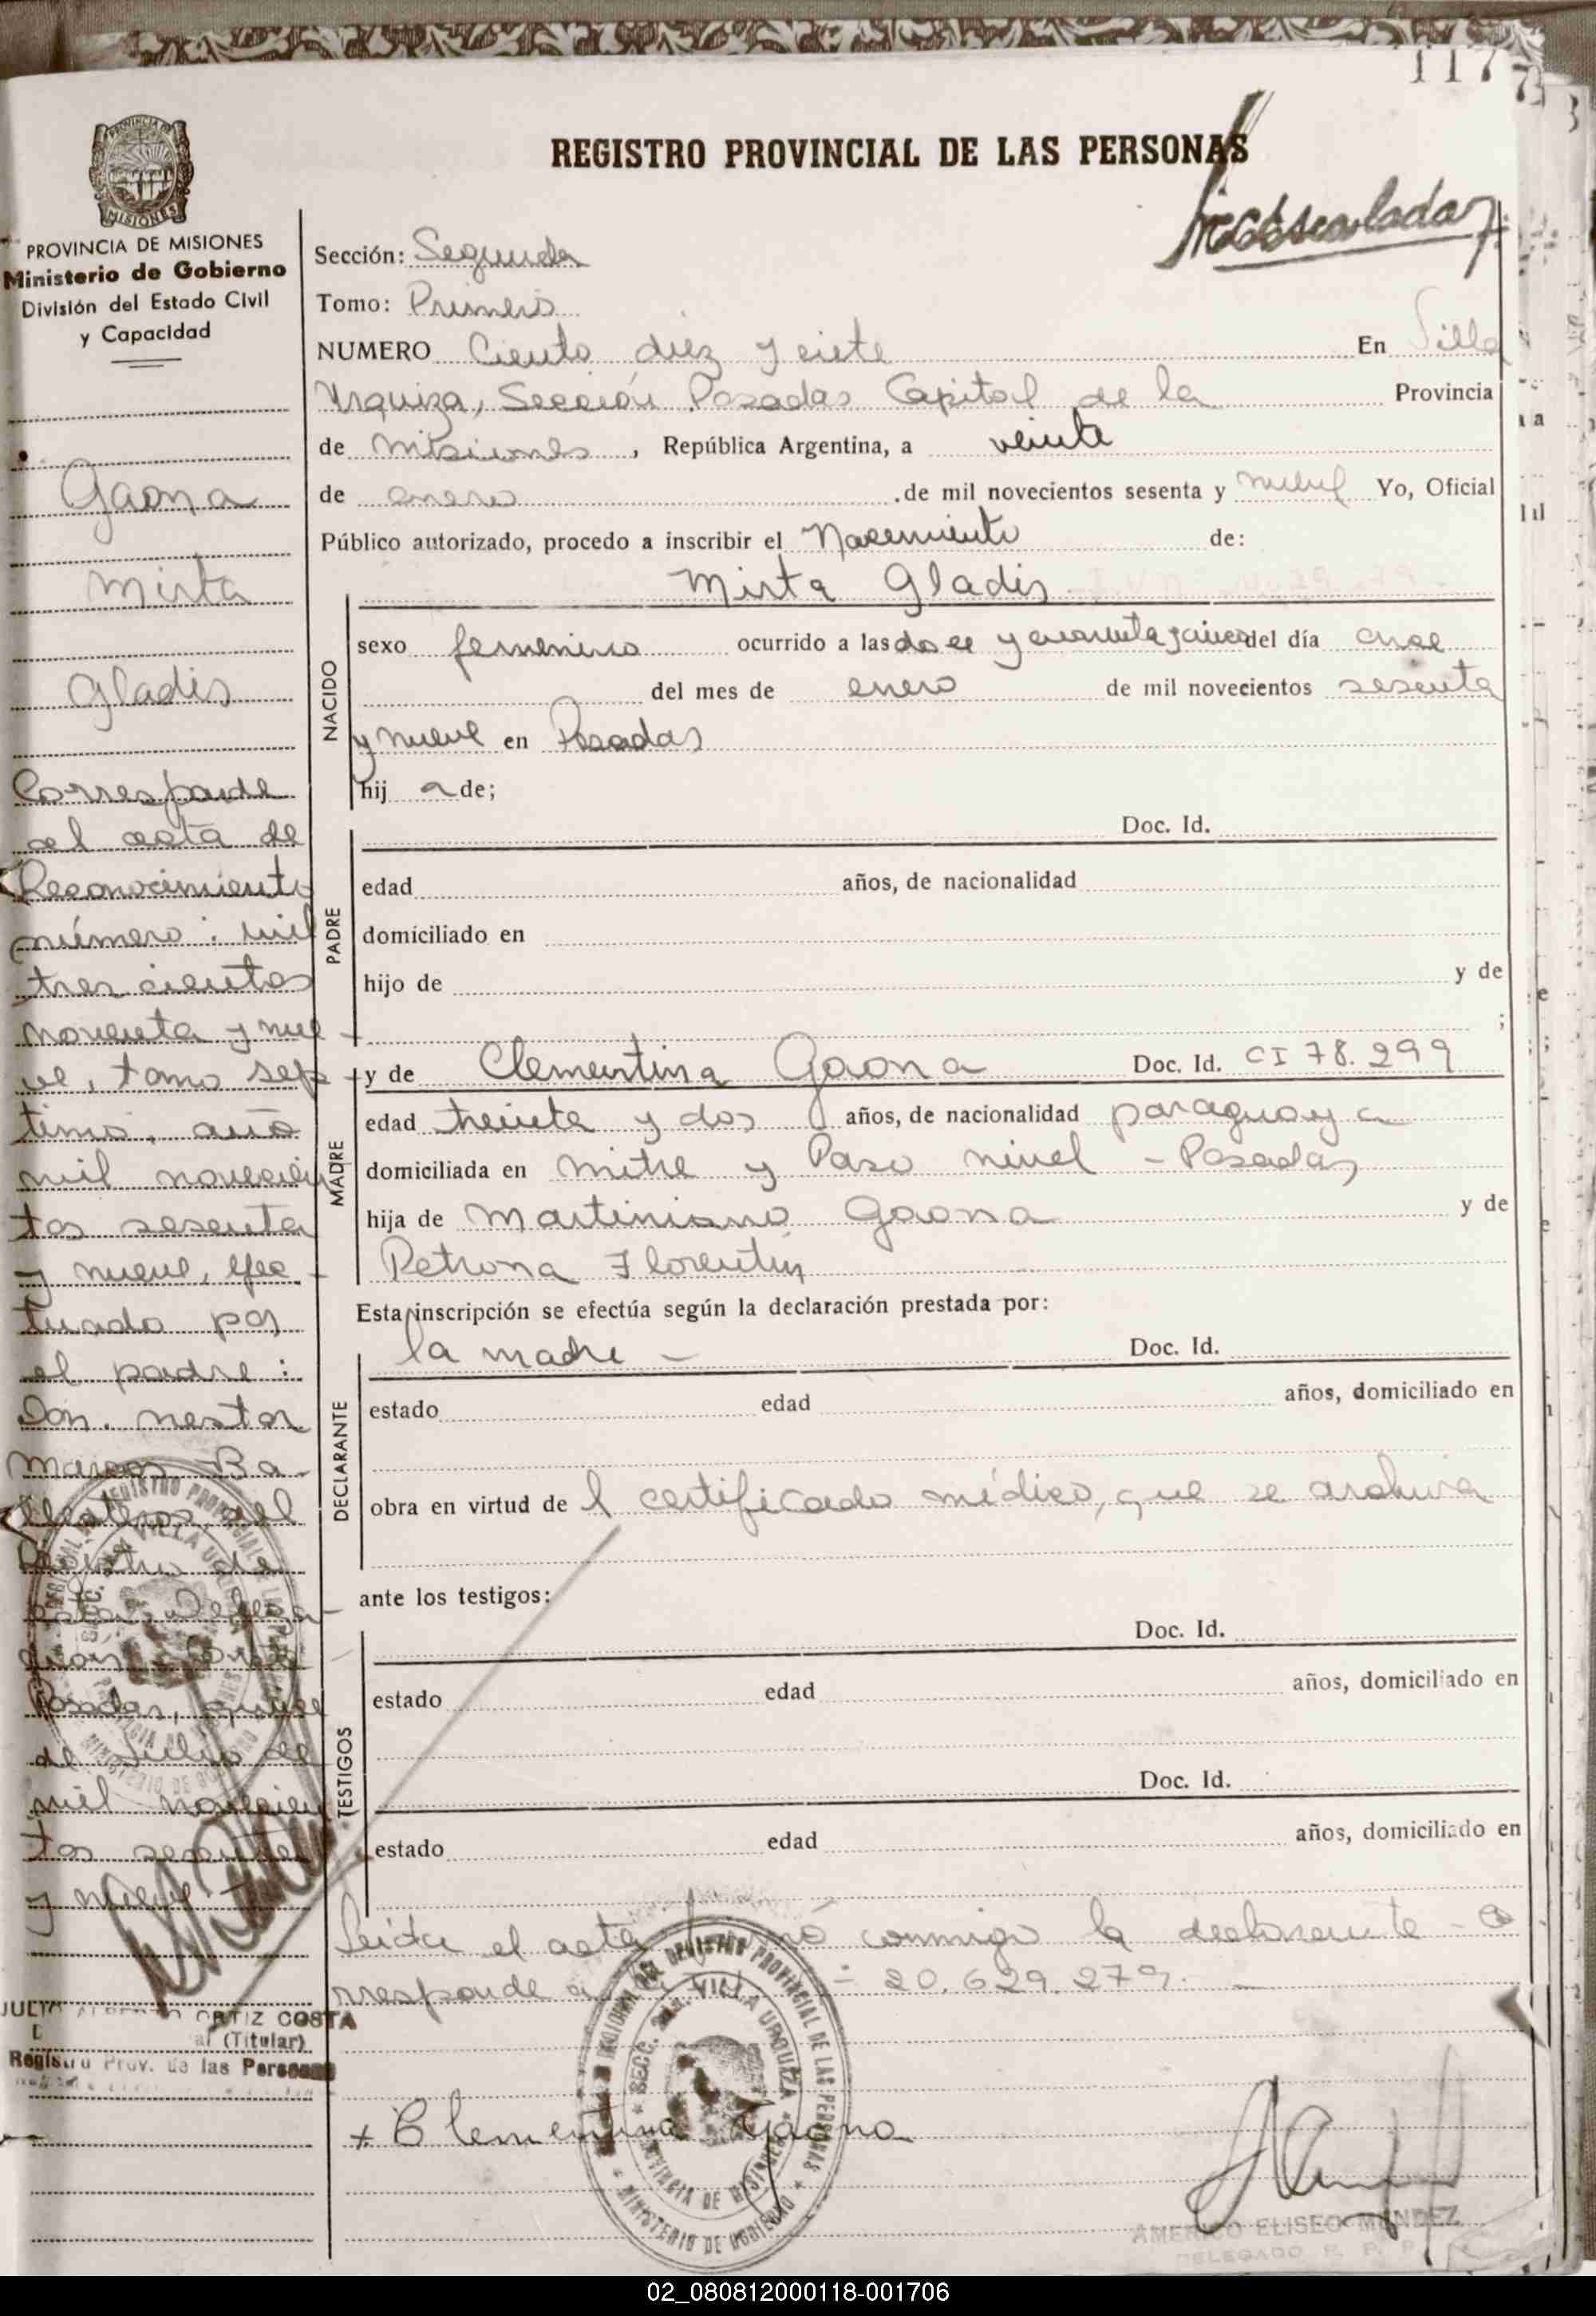 117
REGISTRO PROVINCIAL DE LAS PERSONAS
PROVINCIA DE MISIONES
Ministerio de Gobierno
División del Estado Civil
y Capacidad
Gaona
Mirta
Gladis
Corresponde
al acta de
Reconocimiento
número: mil
trescientos
noventa y nue-
ve, tomo sép-
timo, año
mil novecien
tos sesenta
y nueve, efec-
tuado por
el padre:
Don. Nestor
Marcos Ba-
del
de
esta Delega-
Posadas, quince
de Julio de
mil novecien
tos sesenta
y nueve
ORTIZ COSTA
(Titular)
Registro Prov. de las Personas
Sección: Segunda
Tomo: Primero
NUMERO Ciento diez y siete En Villa
Urquiza, Sección Posadas Capital de la Provincia
de Misiones, República Argentina, a veinte
de enero de mil novecientos sesenta y nueve Yo, Oficial
Público autorizado, procedo a inscribir el Nacimiento de:
Mirta Gladis
NACIDO
sexo femenino ocurrido a las doce y cuarenta y cinco del día once
del mes de enero de mil novecientos sesenta
y nueve en Posadas
hij a de;
PADRE
Doc. Id.
edad años, de nacionalidad
domiciliado en
hijo de y de
;
MADRE
y de Clementina Gaona Doc. Id. CI 78.299
edad treinta y dos años, de nacionalidad paraguaya
domiciliada en Mitre y Paso nivel - Posadas
hija de Martiniano Gaona y de
Petrona Florentín
Esta inscripción se efectúa según la declaración prestada por:
DECLARANTE
la madre - Doc. Id.
estado edad años, domiciliado en
obra en virtud de l certificado médico, que se archiva
ante los testigos:
TESTIGOS
Doc. Id.
estado edad años, domiciliado en
Doc. Id.
estado edad años, domiciliado en
Leída el acta firmó conmigo la declarante - Co
rresponde a 20.629.279. -
SECC. 2da. VILLA URQUIZA
PROVINCIA DE MISIONES
MINISTERIO DE GOBIERNO
+ Clementina Gaona
AMERICO ELISEO MENDEZ
DELEGADO R. P. P.
02_080812000118-001706